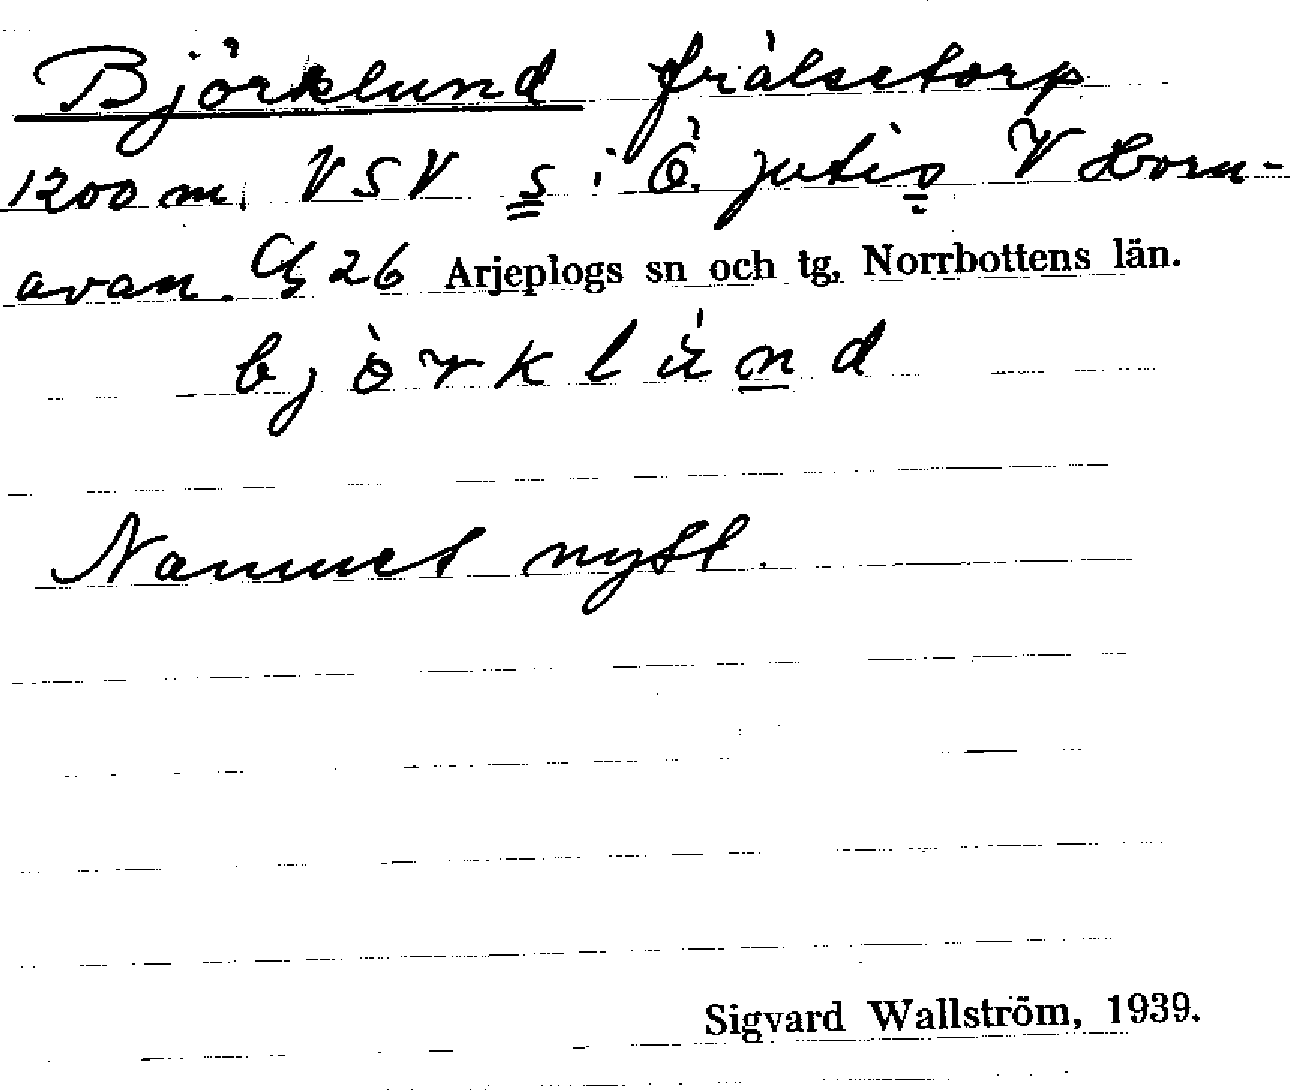 Björklund frälsetorp
1200 m. VSV s i Ö. jutis V Horn-
avan. G 26 Arjeplogs sn och tg, Norrbottens län.
björklùnd
Namnet nytt.
Sigvard Wallström, 1939.